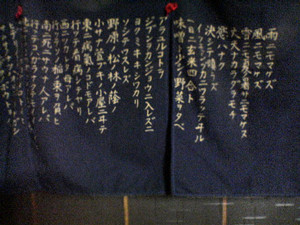 雨ニモマケズ
風ニモマケズ
雪ニモ夏ノ暑サニモマケズ
丈夫ナカラダヲモチ
慾ハナク
決シテ瞋ラズ
イツモシヅカニワラッテヰル
一日ニ玄米四合ト
味噌ト少シノ野菜ヲタベ
アラユルコトヲ
ジブンヲカンジョウニ入レズニ
ヨクミキキシワカリ
ソシテワスレズ
野原ノ松ノ林ノ蔭ノ
小サナ萱ブキノ小屋ニヰテ
東ニ病気ノコドモアレバ
行ッテ看病シテヤリ
西ニツカレタ母アレバ
行ッテソノ稲ノ束ヲ負ヒ
南ニ死ニサウナ人アレバ
行ッテコハガラナクテモ